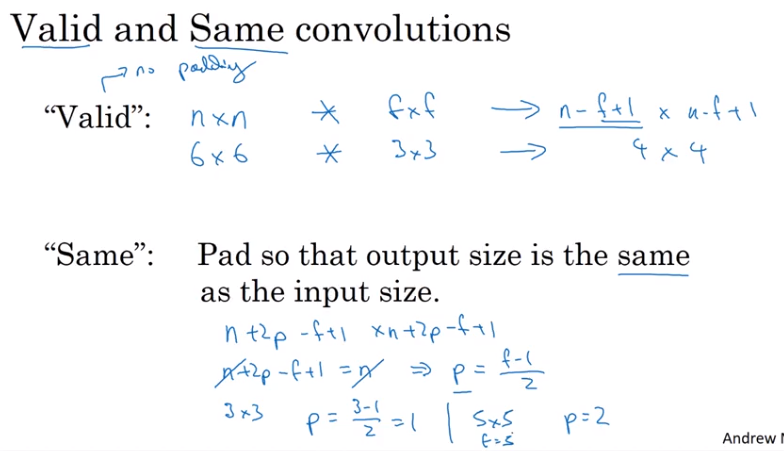 Valid and Same convolutions
→ no padding
“Valid”: n×n * f×f → n-f+1 × n-f+1
6×6 * 3×3 → 4 × 4
“Same”: Pad so that output size is the same
as the input size.
n+2p-f+1 ×n+2p-f+1
n+2p-f+1 = n ⇒ p = f-1/2
3×3 p = 3-1/2 = 1 | 5×5 p=2
f=5
Andrew